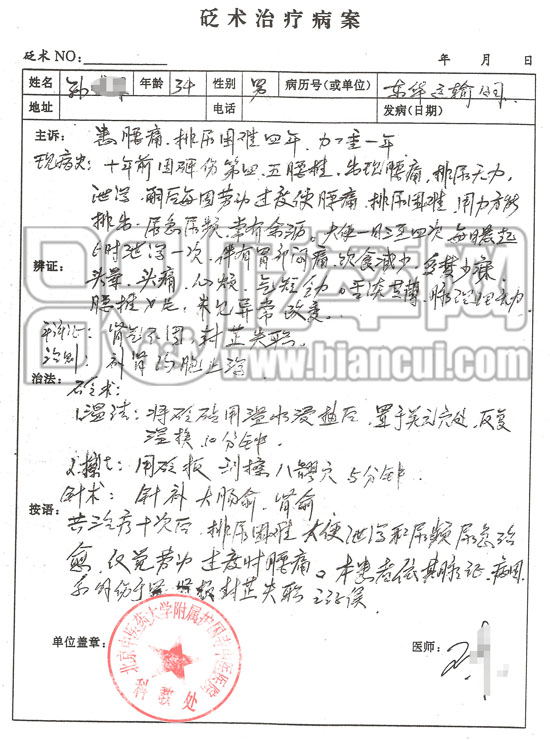 砭术治疗病案
砭术NO: 年 月 日
姓名 孙 年龄 34 性别 男 病历号(或单位) 东华运输公司
地址 电话 发病(日期)
主诉: 患腰痛,排尿困难四年,加重一年
现病史: 十年前因砸伤第四、五腰椎,出现腰痛,排尿无力,
泄泻,嗣后每因劳动过度使腰痛,排尿困难,用力方能
排出,尿急尿频,常有余沥。大便一日三至四次,每晨起
6时泄泻一次,伴有胃脘闷痛,饮食减少,多梦少寐
头晕、头痛、心烦、气短乏力。舌淡苔薄,脉沉细无力
腰椎X片:未见异常改变。
辨证:
辨证: 肾气不固,封芷失职
治则: 补肾
治法:
砭术:
1.温法:将砭砧用温水浸热后,置于关元穴处,反复
温换10分钟。
2.擦法:用砭板刮擦八髎穴5分钟
针术:针补大肠俞、肾俞
按语: 共治疗十次后,排尿困难大便泄泻和尿频尿急治
愈,仅觉劳动过度时腰痛。本患者依其脉证,病因
系外伤 封芷失职
单位盖章:
北京中医药大学附属护国寺中医医院
科教处
医师:
砭萃网
www.biancui.com